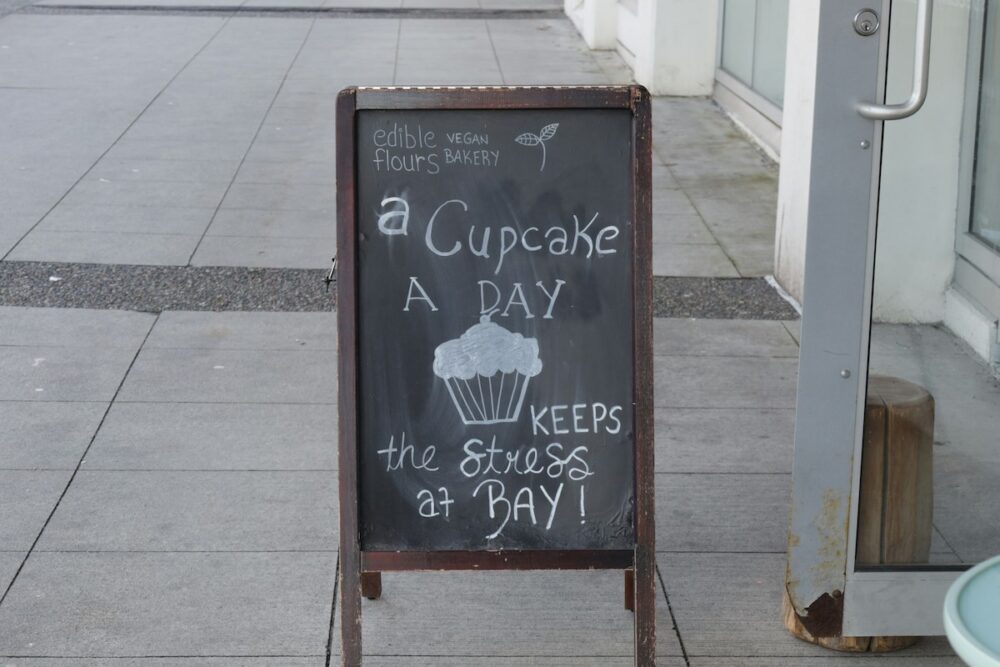 edible VEGAN
flours BAKERY
a Cupcake
A DAY
KEEPS
the stress
at BAY!